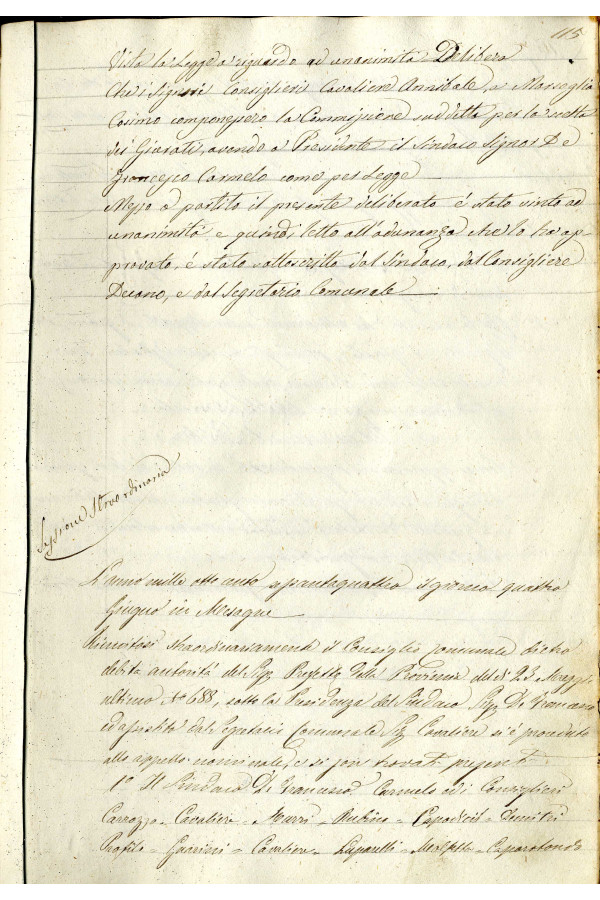 115
Vista la Legge a riguardo ad unanimità Delibera
Che i Signori Consiglieri Cavaliere Annibale, e Marseglia
Cosimo componessero la Commissione suddetta per la scelta
dei Giurati, avendo a Presidente il Sindaco Signor De
Francesco Carmelo come per Legge
Messo a partito il presente deliberato é stato vinto ad
unanimità e quindi letto all'adunanza che lo ha ap-
provato, é stato sottoscritto dal Sindaco, dal Consigliere
Decano, e dal Segretario Comunale
Sessione Straordinaria
L'anno mille otto cento sessantaquattro il giorno quattro
Giugno in Mesagne
Riunitosi straordinariamente il Consiglio Comunale dietro
debita autorità del Sig. Prefetto della Provincia del dì 23 Maggio
ultimo N° 688, sotto la Presidenza del Sindaco Sig. De Francesco
ed assistito dal Segretario Comunale Sig. Cavaliere si é proceduto
allo appello nominale, e si son trovati presenti
1° Il Sindaco De Francesco Carmelo ed i Consiglieri
Carrozzo - Cavaliere - Murri - Rubino - Capodieci -
Profilo - Guarini - Cavaliere - - -